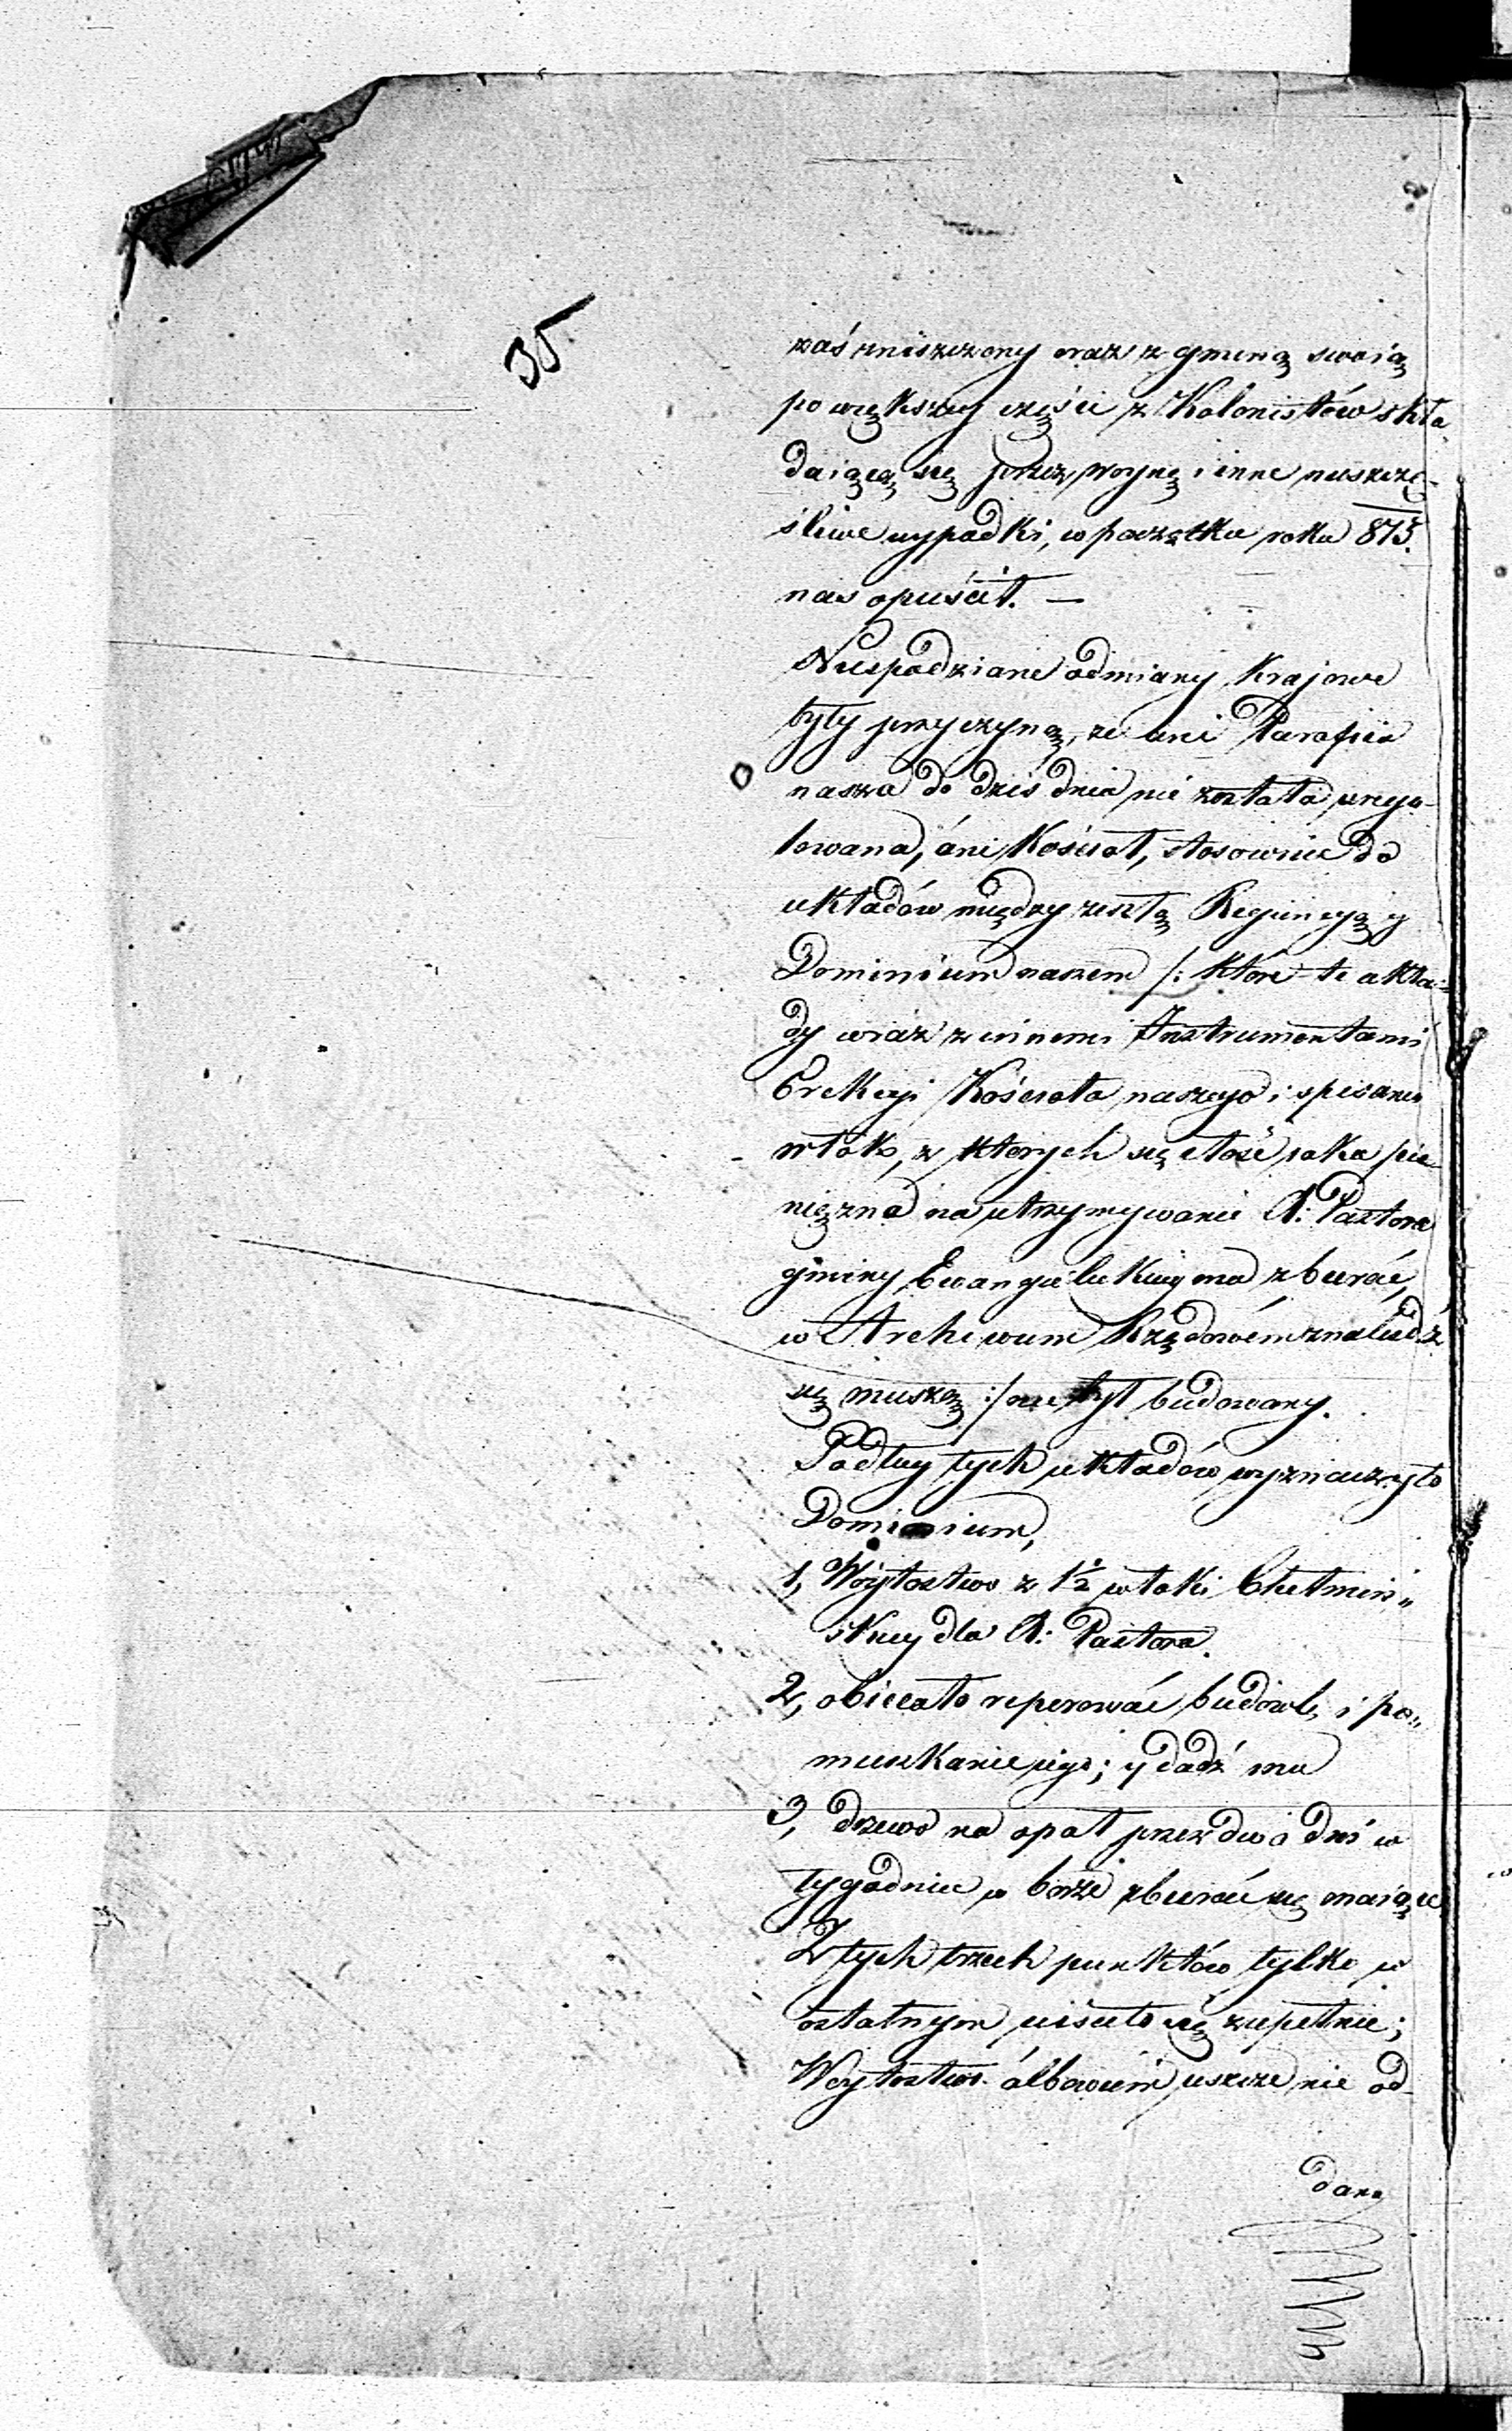 35
zaś zniszczony oraz z gminą swoią
po większey części z Kolonistów skła
daiącą się przez woynę i inne nieszczę-
śliwe wypadki, w początku roku 815.
nas opuścił. —
Niespodziane odmiany Krajowe
były przyczyną, że ani Parafia
nasza do dziś dnia nie została uregu-
lowana, áni Kościoł, stosownie do
układów między zeszłą Regiencyą y
Dominium naszem /: które-te ukła-
dy wraz z innemi Instrumentami
Erekcyi Kościoła naszego i spisanie
włok, z których się ilość jaka pie
niężna na utrzymywanie X: Pastora
gminy Ewangielickiey ma zbierać,
w Archiwum Rządowém znaleidź
się muszą :/ nie był budowany.
Podług tych układów wyznaczyło
Dominium,
1, Wóytostwo z 1½ włoki Chełmiń„
skiey dla X: Pastora.
2, obiecało reperować budowle i po„
mieszkanie jego; y dadź mu
3, drzewo na opał przez dwa dni w
tygodniu w borze zbierać się maiące.
Z tych trzech punktów tylko w
ostatnym uiściło się zupełnie;
Woytostwo álbowiém jeszcze nie od-
dane